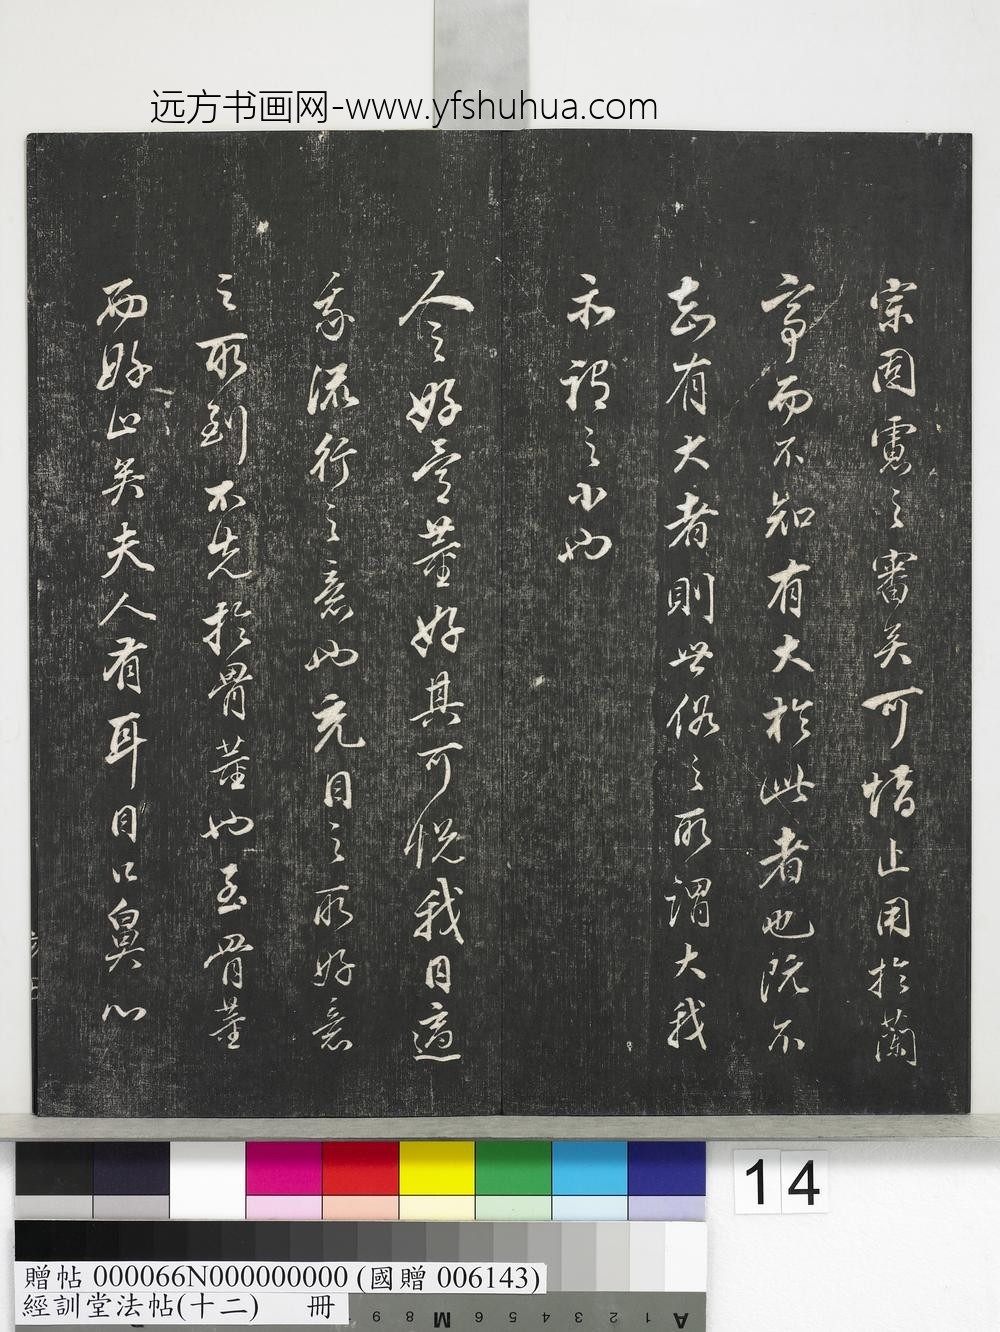 远方书画网-www.yfshuhua.com
宗固慮之審矣可惜止用於蘭
亭而不知有大於此者也既不
知有大者則世俗之所謂大我
亦謂之小也
人之好骨董好其可悅我目適
我流行之意也充目之所好意
之所到不先於骨董也至骨董
而好止矣夫人有耳目口鼻心
14
贈帖 000066N000000000 (國贈 006143)
經訓堂法帖(十二) 冊
A 1 2 3 4 5 6 M 8 9